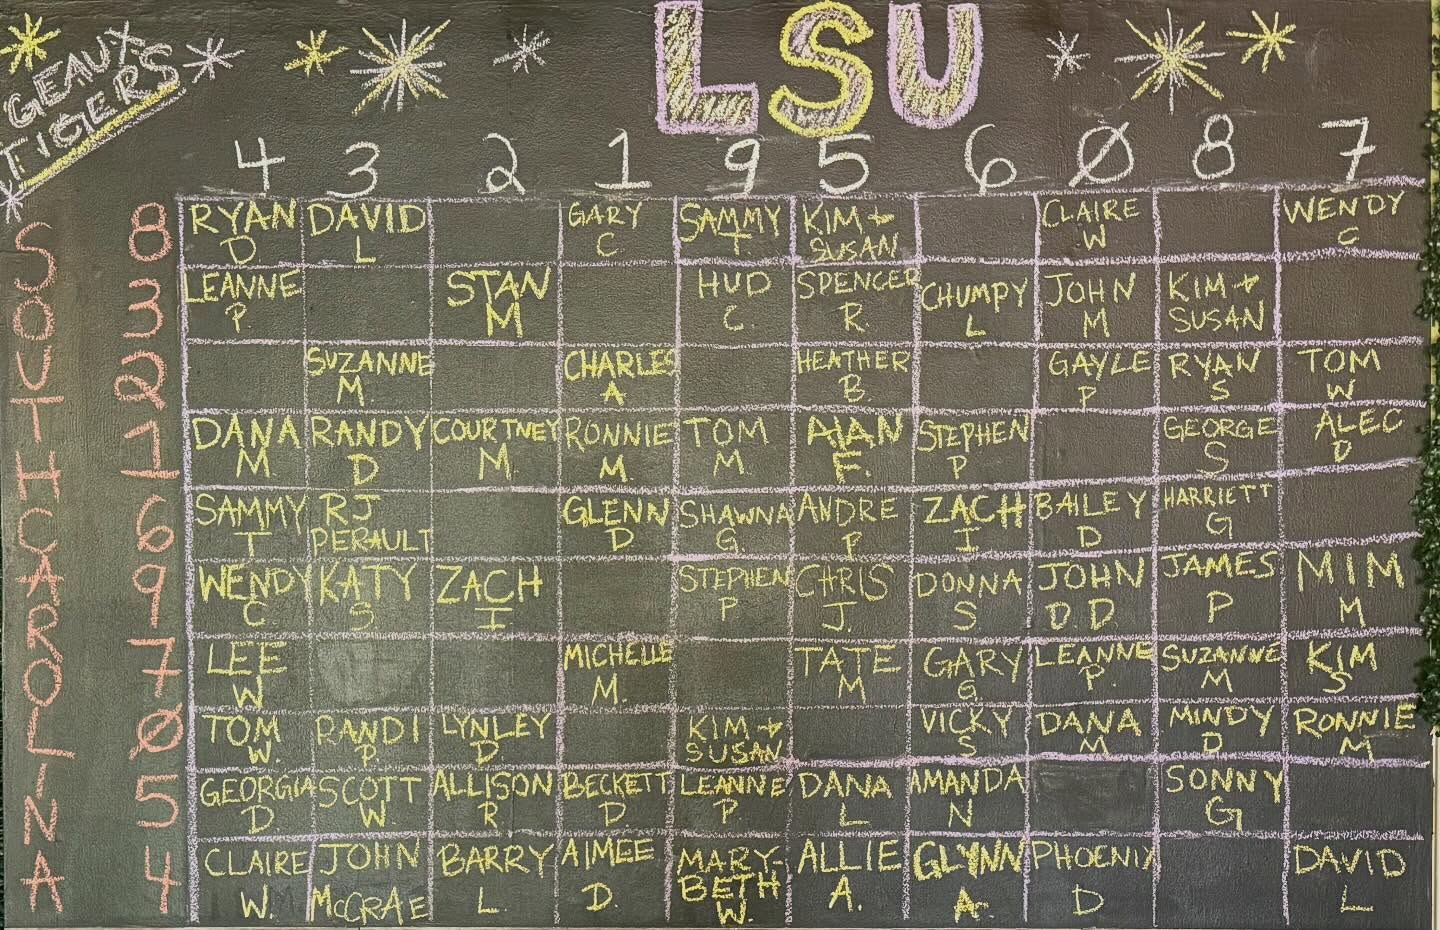 GEAUX
TIGERS
LSU
4 3 2 1 9 5 6 0 8 7
SOUTH CAROLINA
8 RYAN D DAVID L GARY C SAMMY T KIM + SUSAN CLAIRE W WENDY C
3 LEANNE P. STAN M HUD C. SPENCER R. CHUMPY L JOHN M KIM + SUSAN
2 SUZANNE M. CHARLES A HEATHER B. GAYLE P RYAN S TOM W
1 DANA M RANDY D COURTNEY M. RONNIE M. TOM M. ALAN F. STEPHEN P GEORGE S ALEC D
6 SAMMY T RJ PERAULT GLENN D SHAWNA G. ANDRE P ZACH I BAILEY D HARRIETT G
9 WENDY C KATY S ZACH I STEPHEN P CHRIS J. DONNA S JOHN D D JAMES P MIM M
7 LEE W MICHELLE M. TATE M GARY G LEANNE P. SUZANNE M KIM S
0 TOM W. RANDI P. LYNLEY D KIM + SUSAN VICKY S DANA M MINDY D RONNIE M
5 GEORGIA D SCOTT W. ALLISON R BECKETT D LEANNE P DANA L AMANDA N SONNY G
4 CLAIRE W. JOHN McCRAE BARRY L. AIMEE D. MARY-BETH W. ALLIE A. GLYNN A. PHOENIX D DAVID L